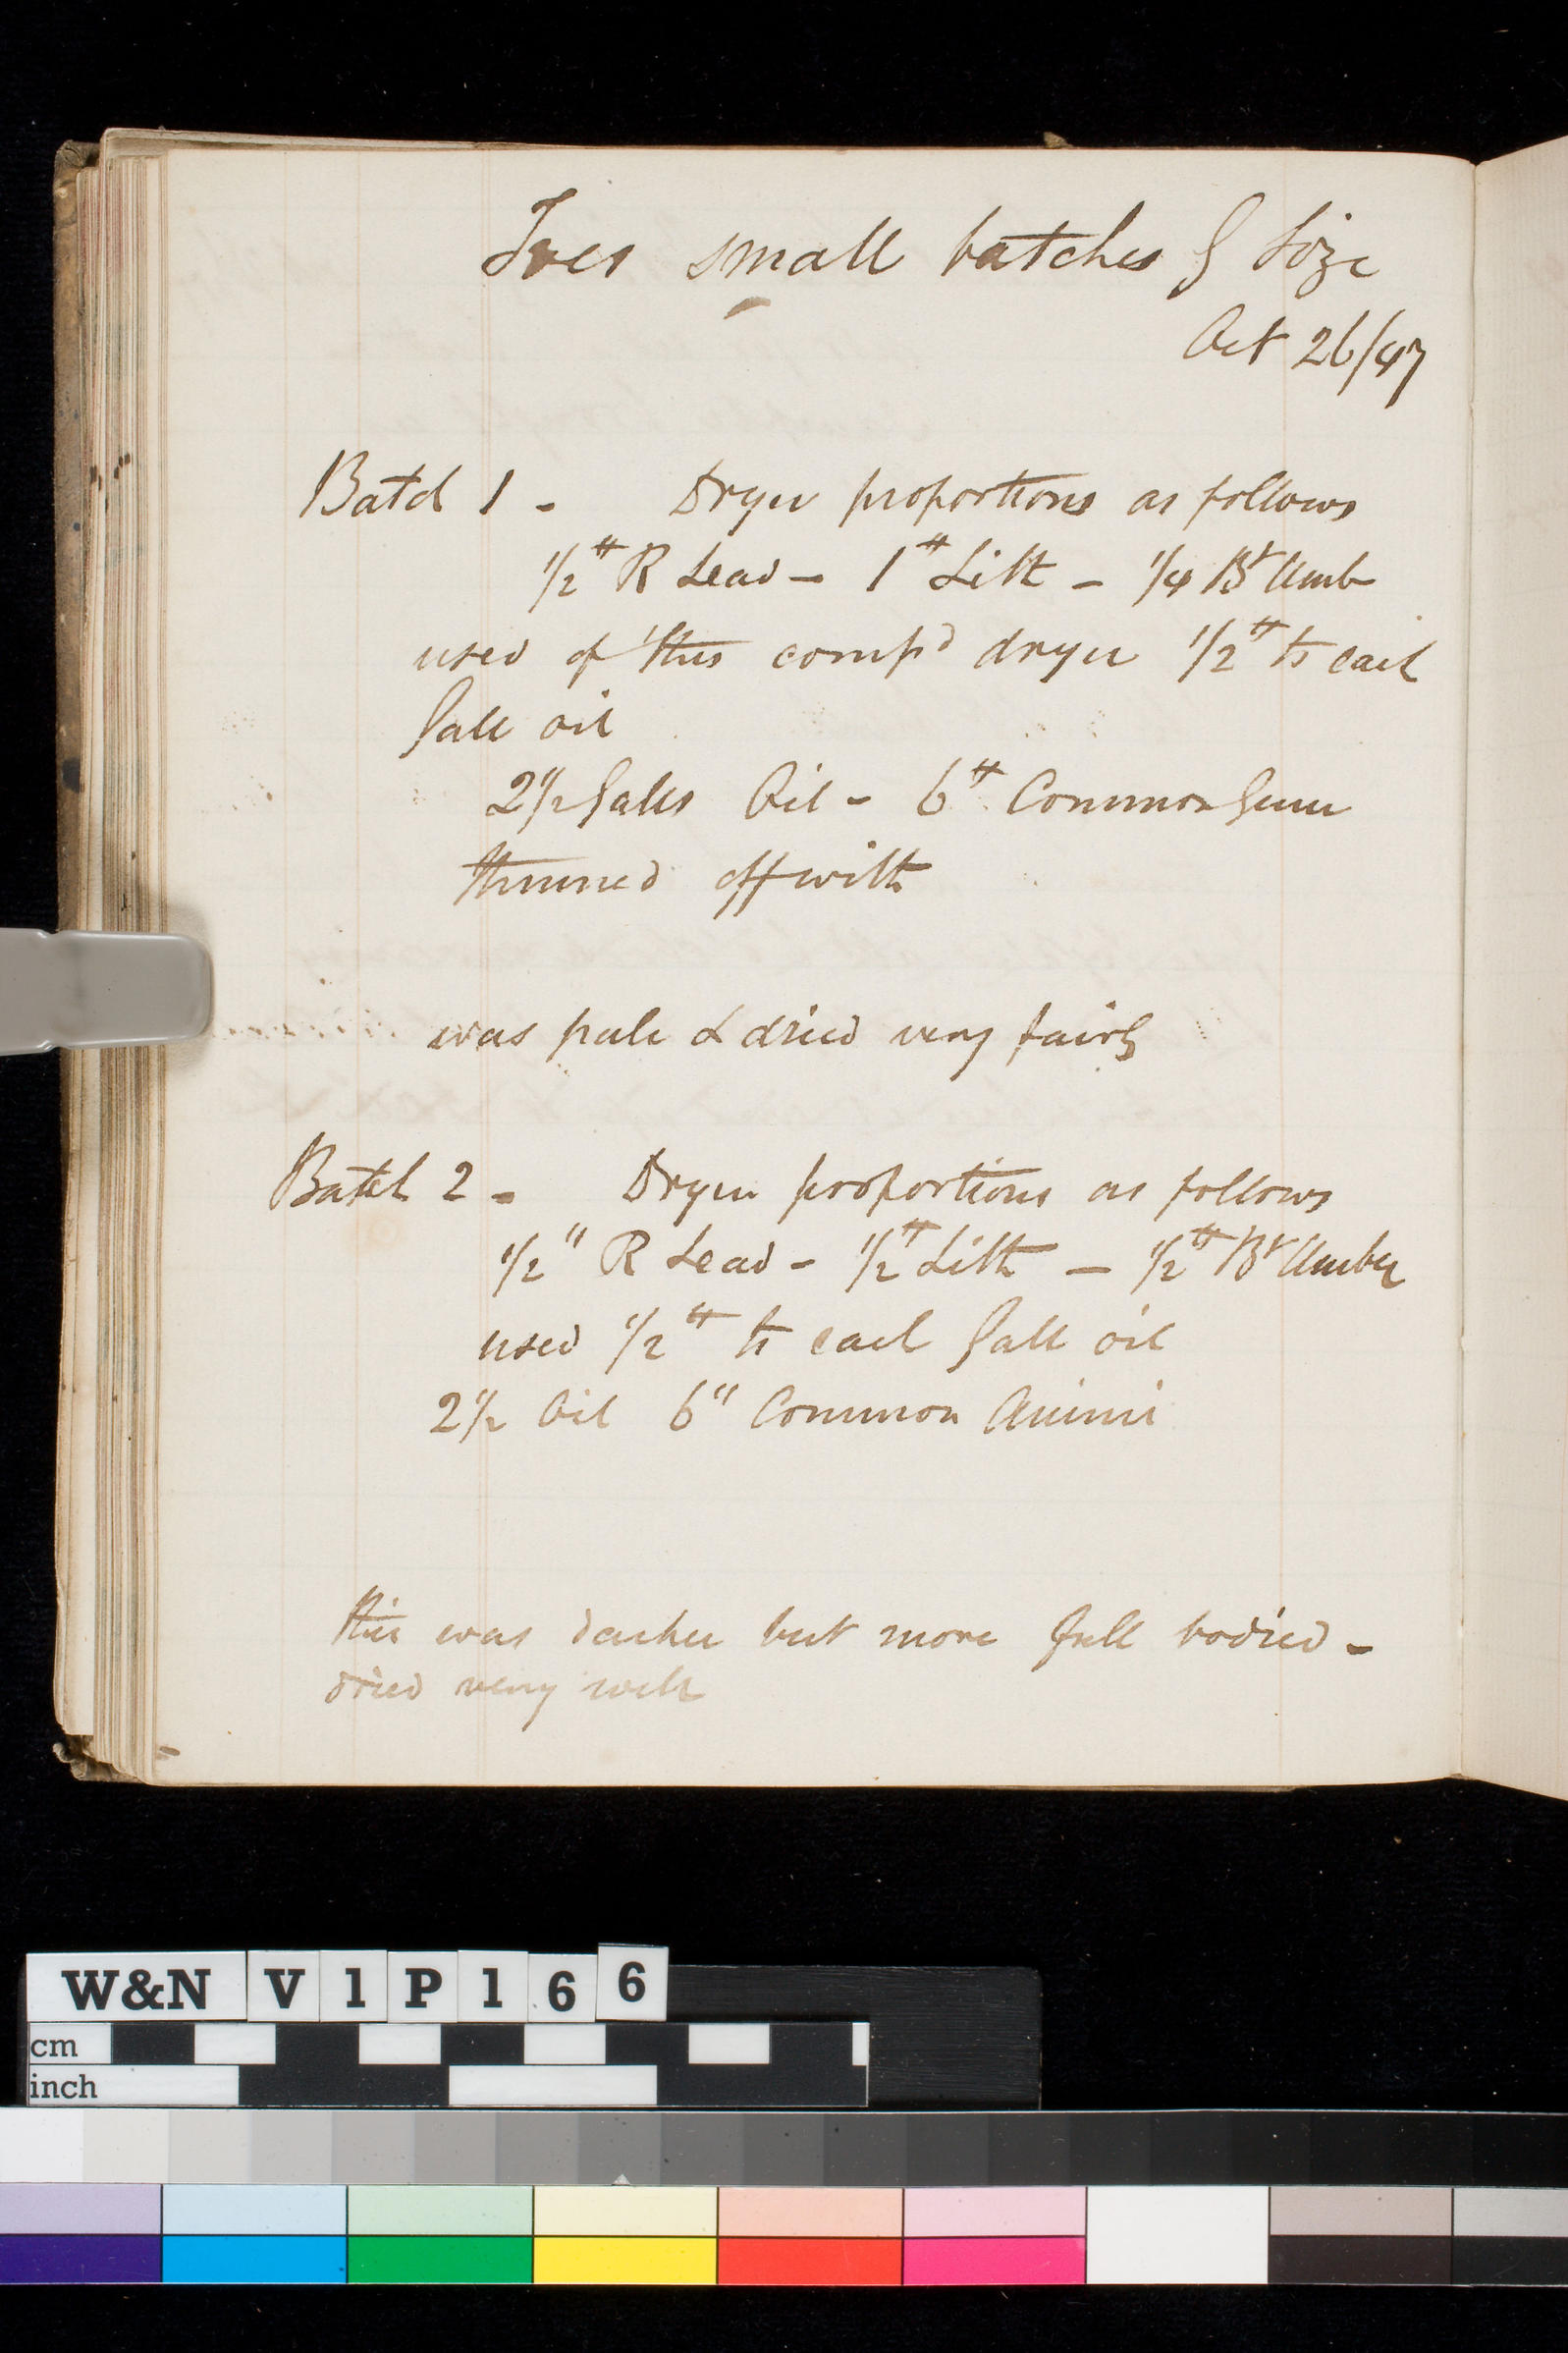 small batches G Size
Oct 26/47
Batch 1 - Dryer proportions as follows
1/2 # R Lead - 1 # Lith - 1/4 Bt Umb
used of this comp'd dryer 1/2 # to each
Gall oil
2 1/2 Galls Oil - 6 # Common Gum
thinned off with
was pale & dried very fairly
Batch 2 - Dryer proportions as follows
1/2 " R Lead - 1/2 # Lith - 1/2 # Bt Umber
used 1/2 # to each Gall oil
2 1/2 Oil 6 " Common Animi
this was darker but more full bodied -
dried very well
W&N V1P166
cm
inch